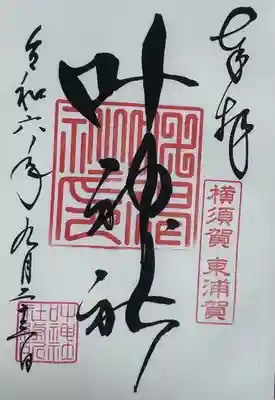 奉拝
横須賀 東浦賀
叶神社
令和六年九月二十三日
叶神社
社務所印